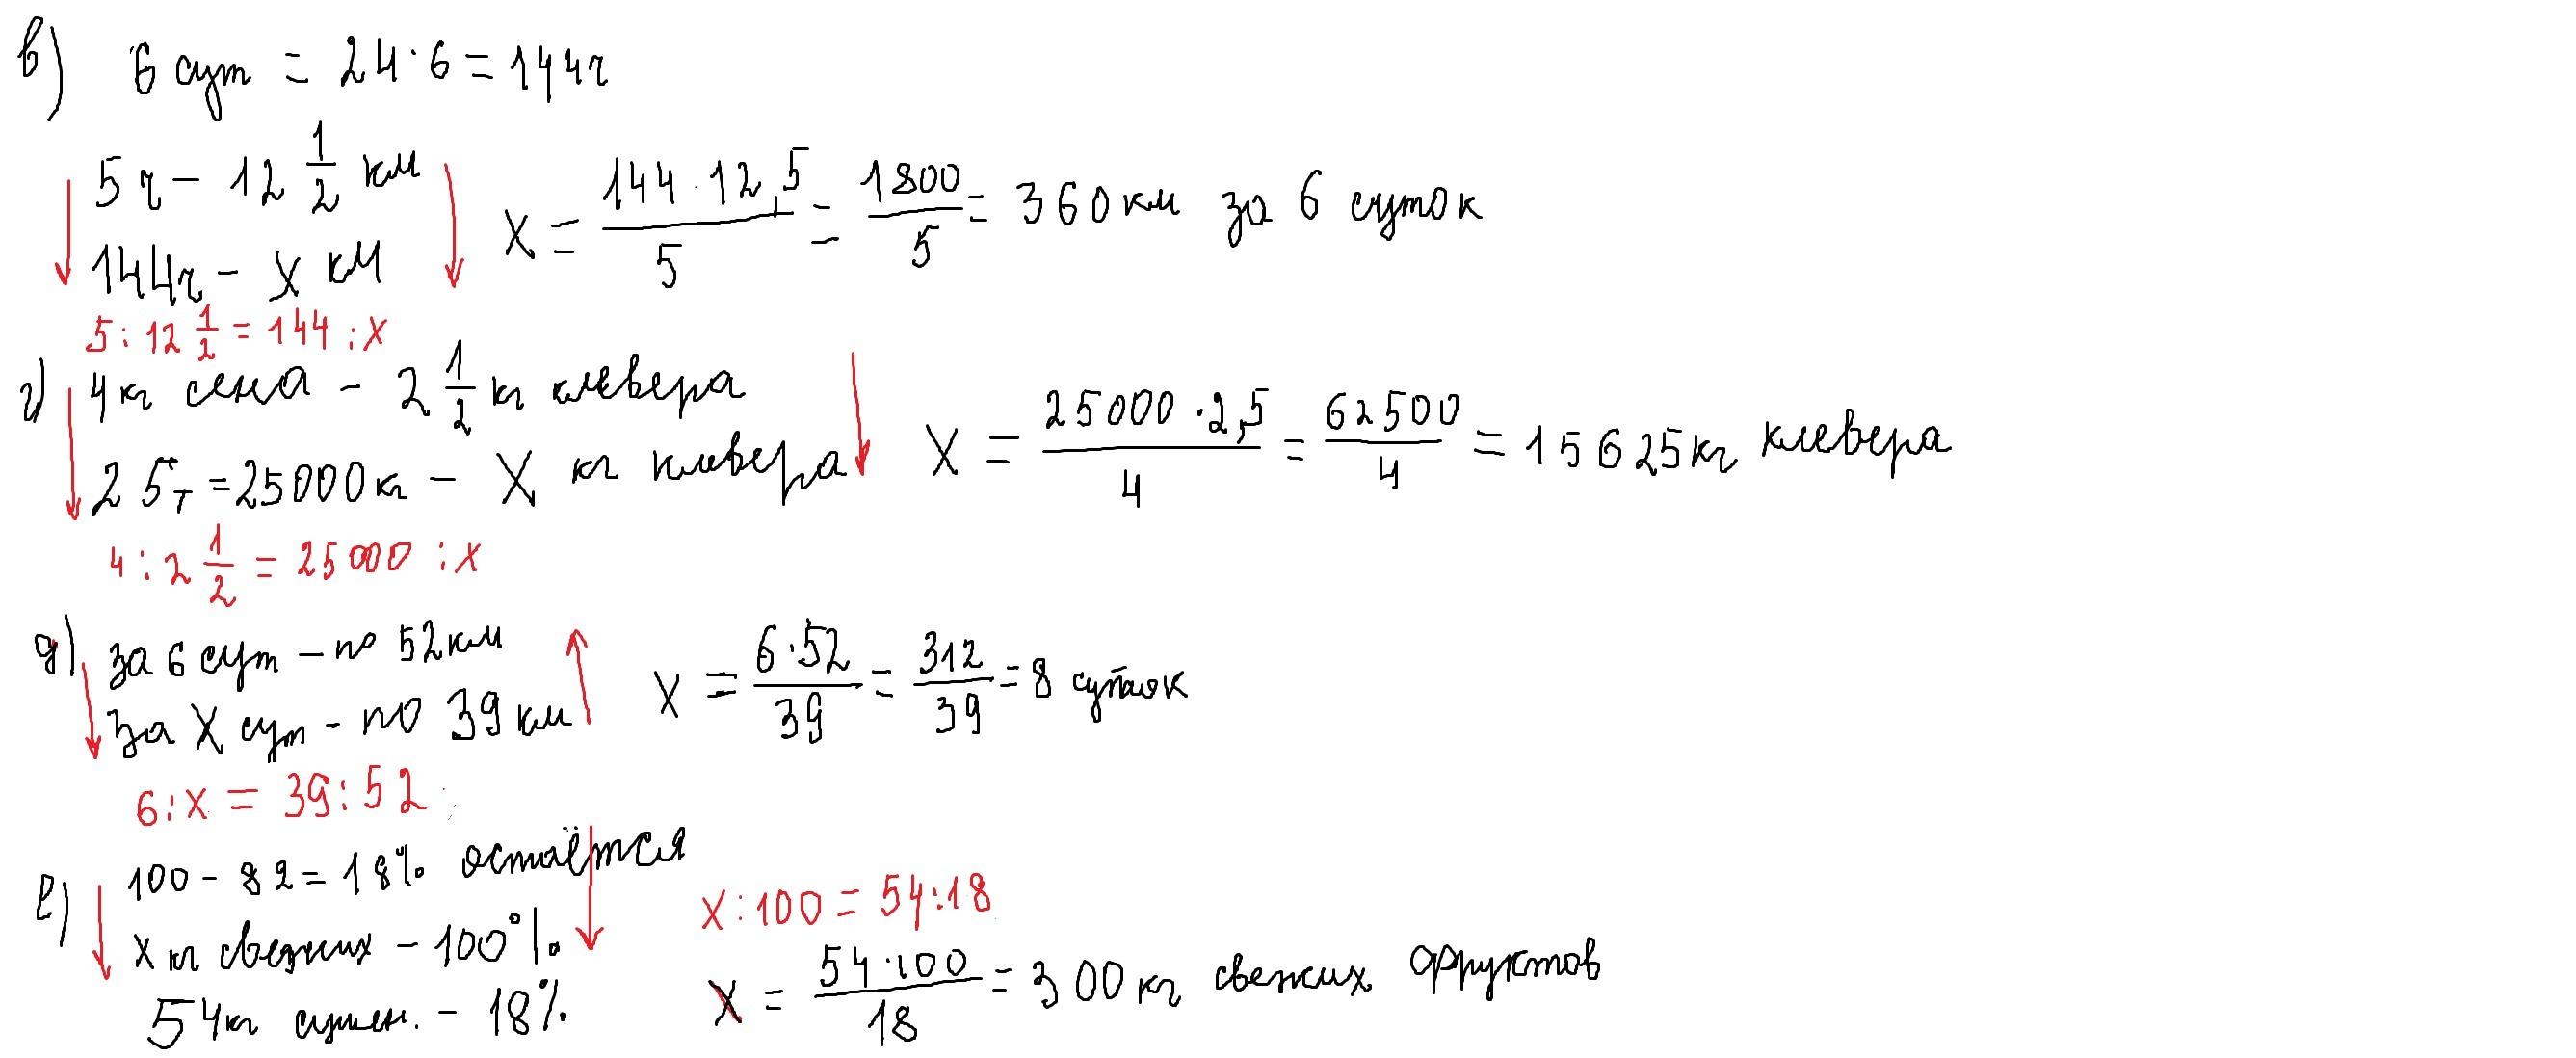 в) 6 сут = 24·6 = 144ч
5ч – 12 1/2 км
144ч – х км
х = 144·12,5/5 = 1800/5 = 360 км за 6 суток
5 : 12 1/2 = 144 : х
г) 4кг сена – 2 1/2 кг клевера
25т = 25000кг – х кг клевера
х = 25000·2,5/4 = 62500/4 = 15625кг клевера
4 : 2 1/2 = 25000 : х
д) за 6 сут – по 52км
за х сут – по 39 км
х = 6·52/39 = 312/39 = 8 суток
6 : х = 39 : 52
е) 100 – 82 = 18% остаётся
х кг свежих – 100%
54кг сушен. – 18%
х : 100 = 54 : 18
х = 54·100/18 = 300кг свежих фруктов